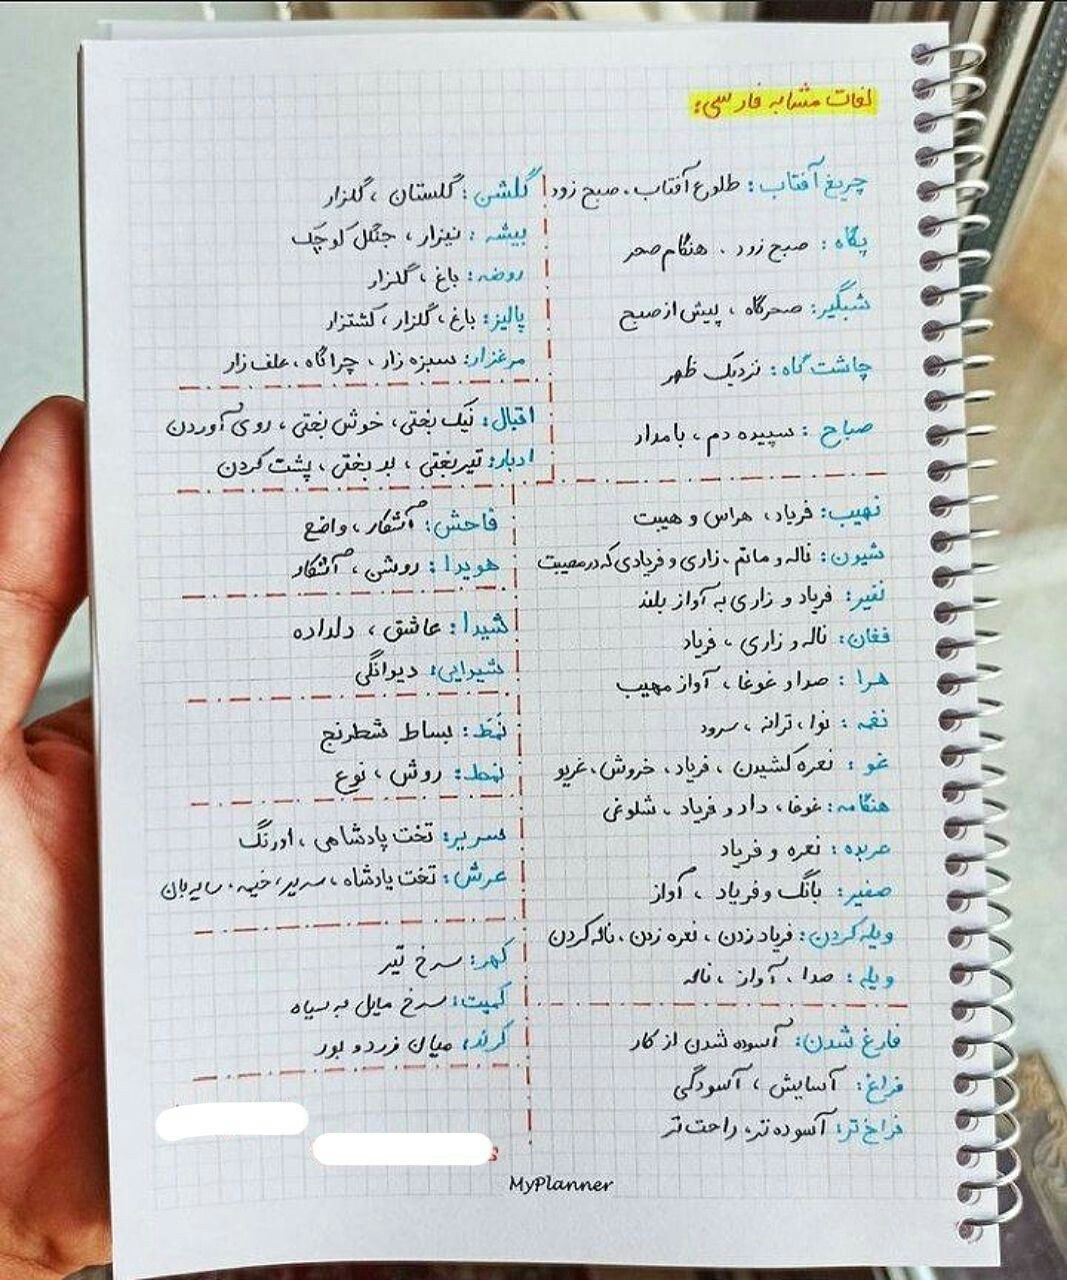 لغات مشابه فارسی:
چریغ آفتاب: طلوع آفتاب، صبح زود
پگاه: صبح زود. هنگام صحر
شبگیر: صحرگاه، پیش از صبح
چاشت گاه: نزدیک ظهر
صباح: سپیده دم، بامداد
نهیب: فریاد، هراس و هیبت
شیون: ناله و ماتم، زاری و فریادی که در مصیبت
نفیر: فریاد و زاری به آواز بلند
فغان: ناله و زاری، فریاد
هرا: صدا و غوغا، آواز مهیب
نغمه: نوا، ترانه، سرود
غو: نعره کشیدن، فریاد، خروش، غریو
هنگامه: غوغا، داد و فریاد، شلوغی
عربده: نعره و فریاد
صفیر: بانگ و فریاد، آواز
ویله کردن: فریاد زدن، نعره زدن، ناله کردن
ویله: صدا، آواز، ناله
فارغ شدن: آسوده شدن از کار
فراغ: آسایش، آسودگی
فراخ تر: آسوده تر، راحت تر
گلشن: گلستان، گلزار
بیشه: نیزار، جنگل کوچک
روضه: باغ، گلزار
پالیز: باغ، گلزار، کشتزار
مرغزار: سبزه زار، چراگاه، علف زار
اقبال: نیک بختی، خوش بختی، روی آوردن
ادبار: تیربختی، بد بختی، پشت کردن
فاحش: آشکار، واضح
هویدا: روشن، آشکار
شیدا: عاشق، دلداده
شیدایی: دیوانگی
نَمَط: بساط شطرنج
نمط: روش، نوع
سریر: تخت پادشاهی، اورنگ
عرش: تخت پادشاه، سریر، خیمه، سایه بان
کهر: سرخ تیر
کمیت: سرخ مایل به سیاه
کرند: میان زرد و بور
MyPlanner